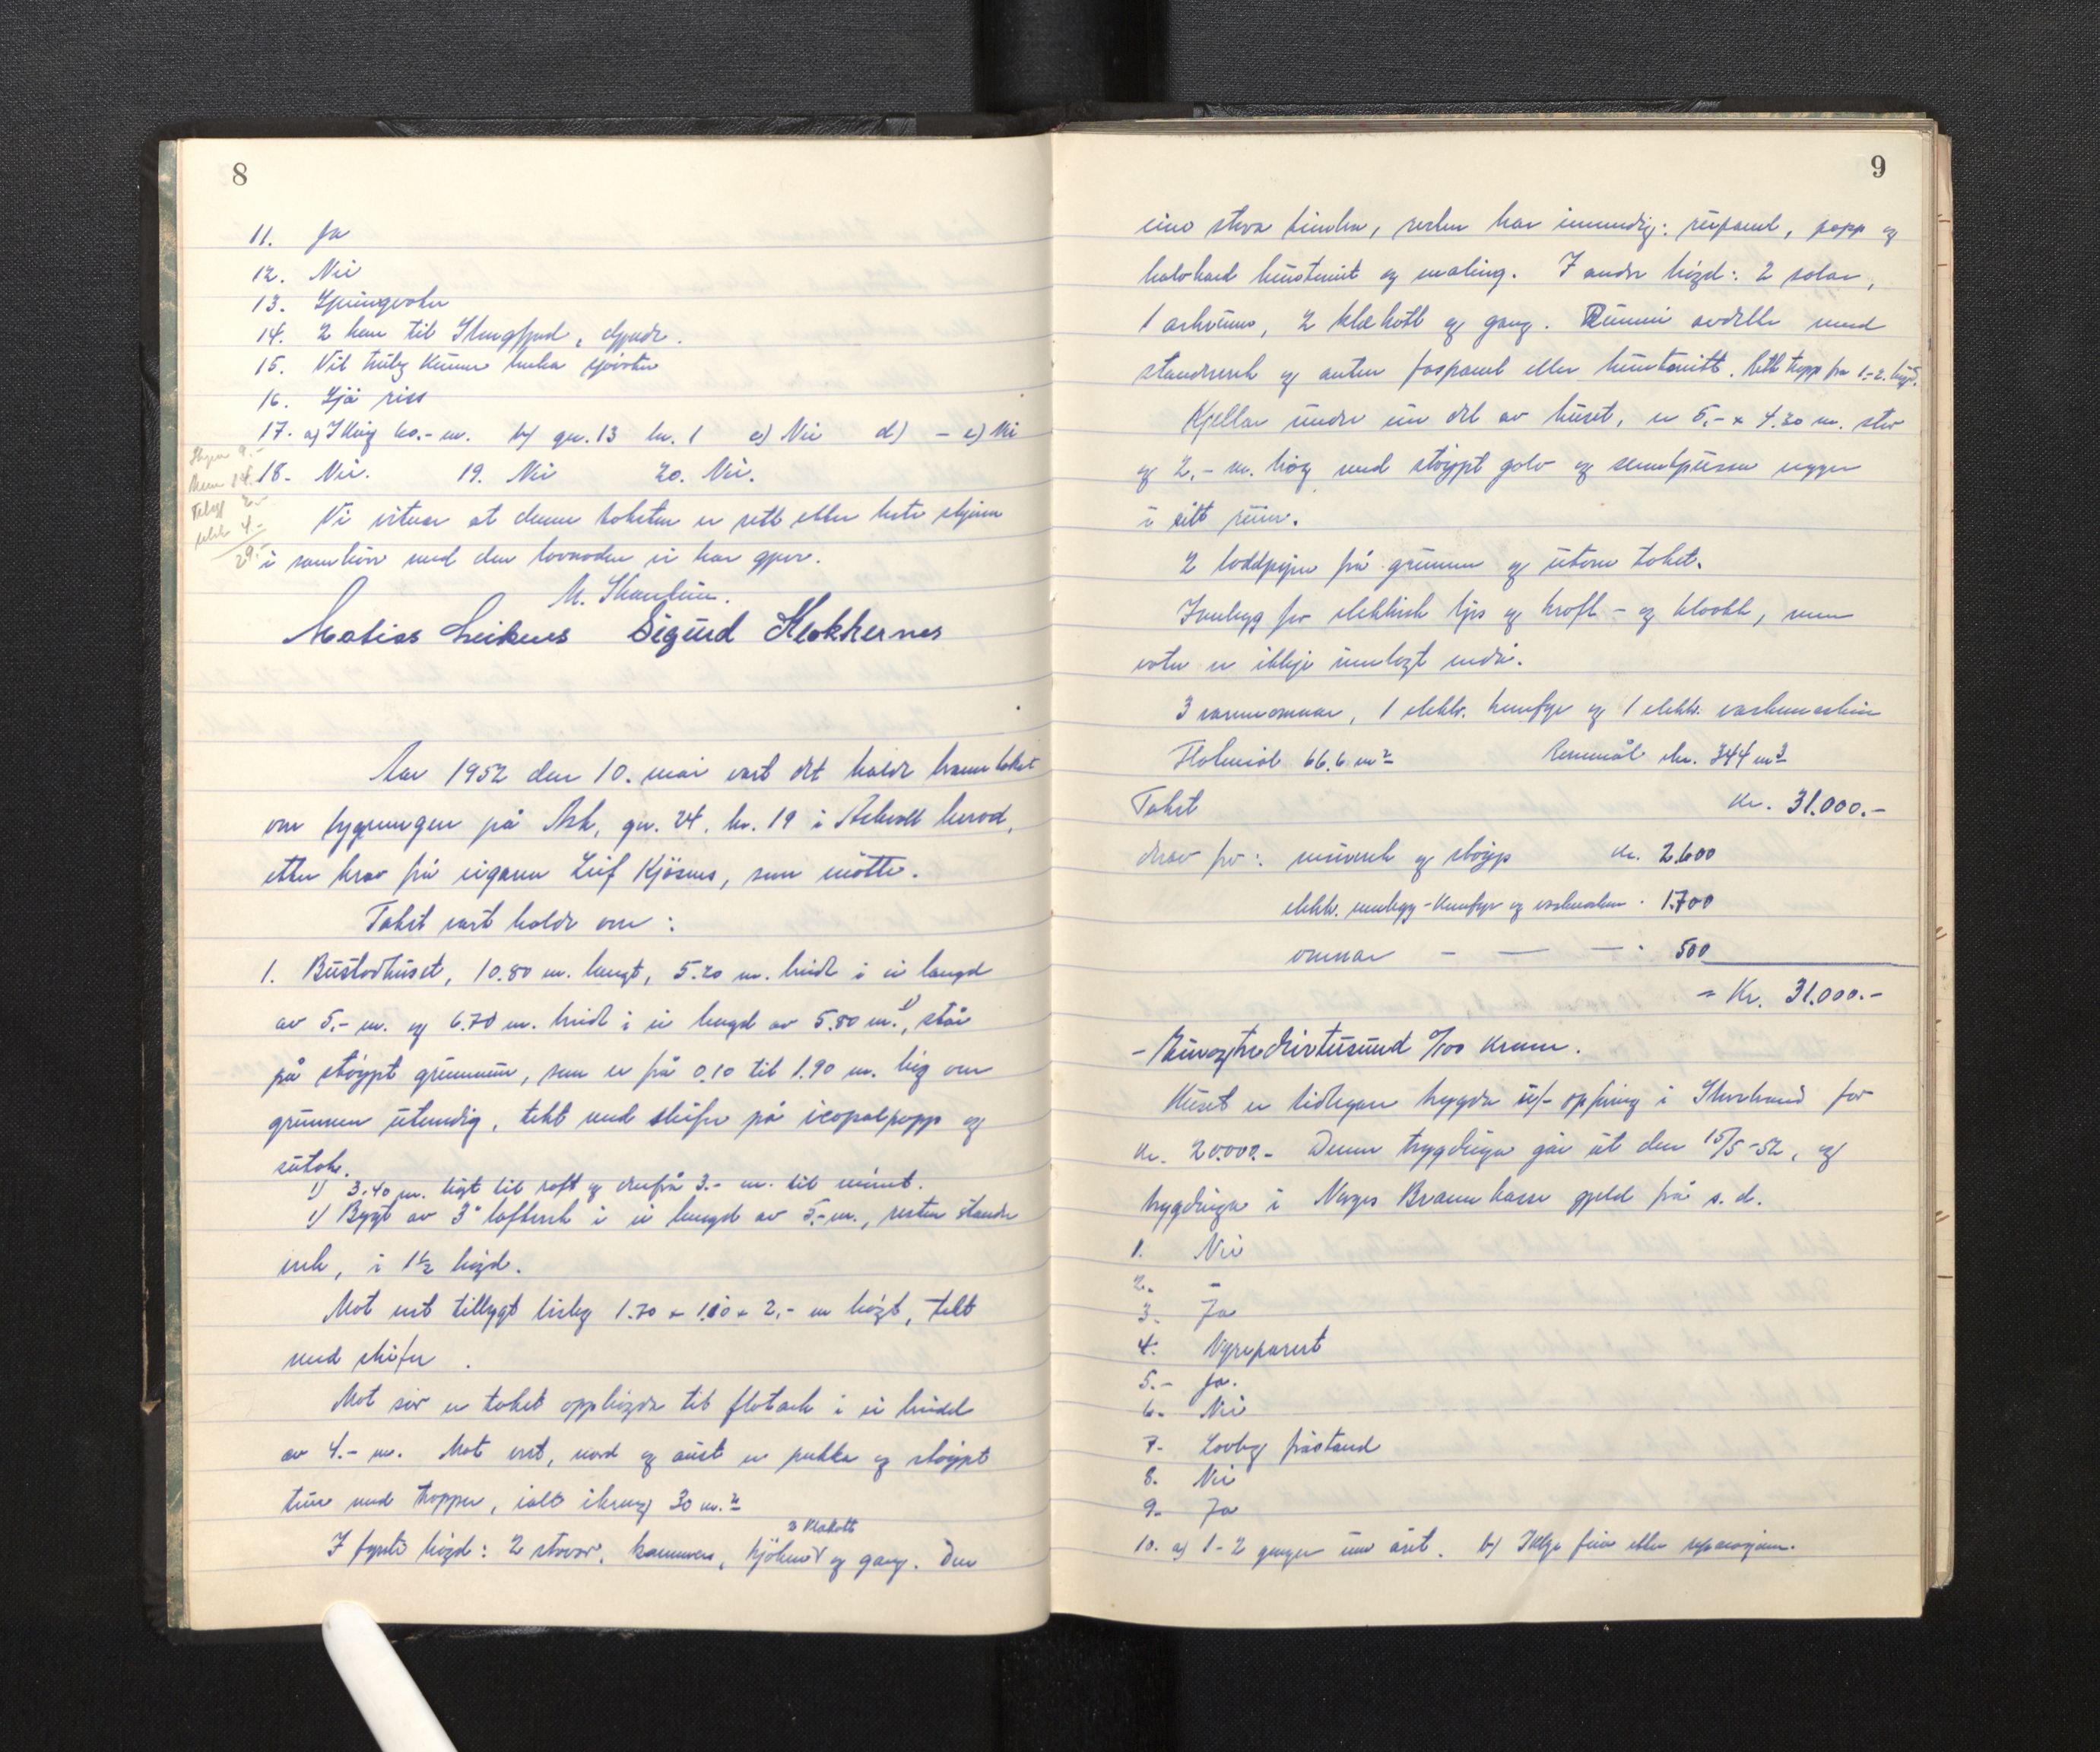 8
11. Ja
12. Nei
13. Springvatn
14. 2 km til Skogsfjord, djupde.
15. Vil truleg kunne bruka sjøvatn
16. Sjå riss
17. a) Kring 60.- m. b) gn. 13 bn. 1 c) Nei d) - e) Nei
18. Nei. 19. Nei 20. Nei.
Skyss 9.-
14.-
2.-
4.-
29.-
Vi vitnar at denne taksten er sett etter beste skjønn
i samhøve med den lovnaden vi har gjeve.
Matias Leiknes Sigurd Klokkernes
Aar 1952 den 10. mai vart det halde branntakst
over bygningen på Ask, gn. 24, bn. 19 i Askvoll herad,
etter krav frå eigaren Leif Kjøsnes, som møtte.
Takst vart halde over:
1. Bustadhuset, 10.80 m. langt, 5.20 m. breidt i ei lengd
av 5,- m. og 6.70 m. breidt i ei lengd av 5.80 m. 1), står
på støypt grunnmur, som er frå 0.10 til 1.90 m. høg over
grunnen utvendig, tekt med skifer på icopalpapp og
sutak.
1) 3.40 m. høgt til raft og derfrå 3.- m. til mønet.
1) Bygt av 3" lafteverk i ei lengd av 5,- m., resten stender
verk, i 1½ høgd.
Mot vest tilbygt bislag 1.70 x 1.10 x 2,- m høgt, tekt
med skifer.
Mot sør er taket opphøgda til flatark i ei breidd
av 4.- m. Mot vest, nord og aust er pukka og støypt
tun med trapper, ialt ikring 30 m.²
3 klskott
I fyrste høgd: 2 stover, kammers, kjøken og gang. Den
9
eine stova timbra, resten har innvendig: reispanel, papp og
halvhard huntonit og maling. I andre høgd: 2 salar,
1 arkrum, 2 kleskott og gang. Rummi avdelte med
stenderverk og anten faspanel eller huntonitt. Rett trapp fra 1.-2. høgd.
Kjellar under ein del av huset, er 5,- x 4.20 m. stor
og 2,- m. høg med støypt golv og sementpussa vegger
i eitt rum.
2 loddpiper frå grunnen og utover taket.
Innlegg for elektrisk ljos og kraft - og kloakk, men
vatn er ikkje innlagt endå.
3 varmeomnar, 1 elektr. komfyr og 1 elektr. vaskemaskin
Flatemål 66.6 m² Rommål ca. 344 m³
Takst Kr. 31.000.-
derav for: murverk og støyp kr. 2.600
elektr. innlegg - komfyr og vaskemaskin " 1.700
omnar - — — " 500
= Kr. 31.000.-
- Einogtrediivetusund 0/100 kroner.
Huset er tidlegare trygda u/- oppføring i Storebrand for
kr. 20.000.- Denne trygdinga går ut den 15/5-52, og
trygdinga i Norges Brannkasse gjeld frå s. d.
1. Nei
2. -
3. Ja
4. Nyreparert
5.- Ja.
6. Nei
7. Lovleg fråstand
8. Nei
9. Ja
10. a) 1-2 gonger um året. b) Ikkje feia etter reparasjonen.